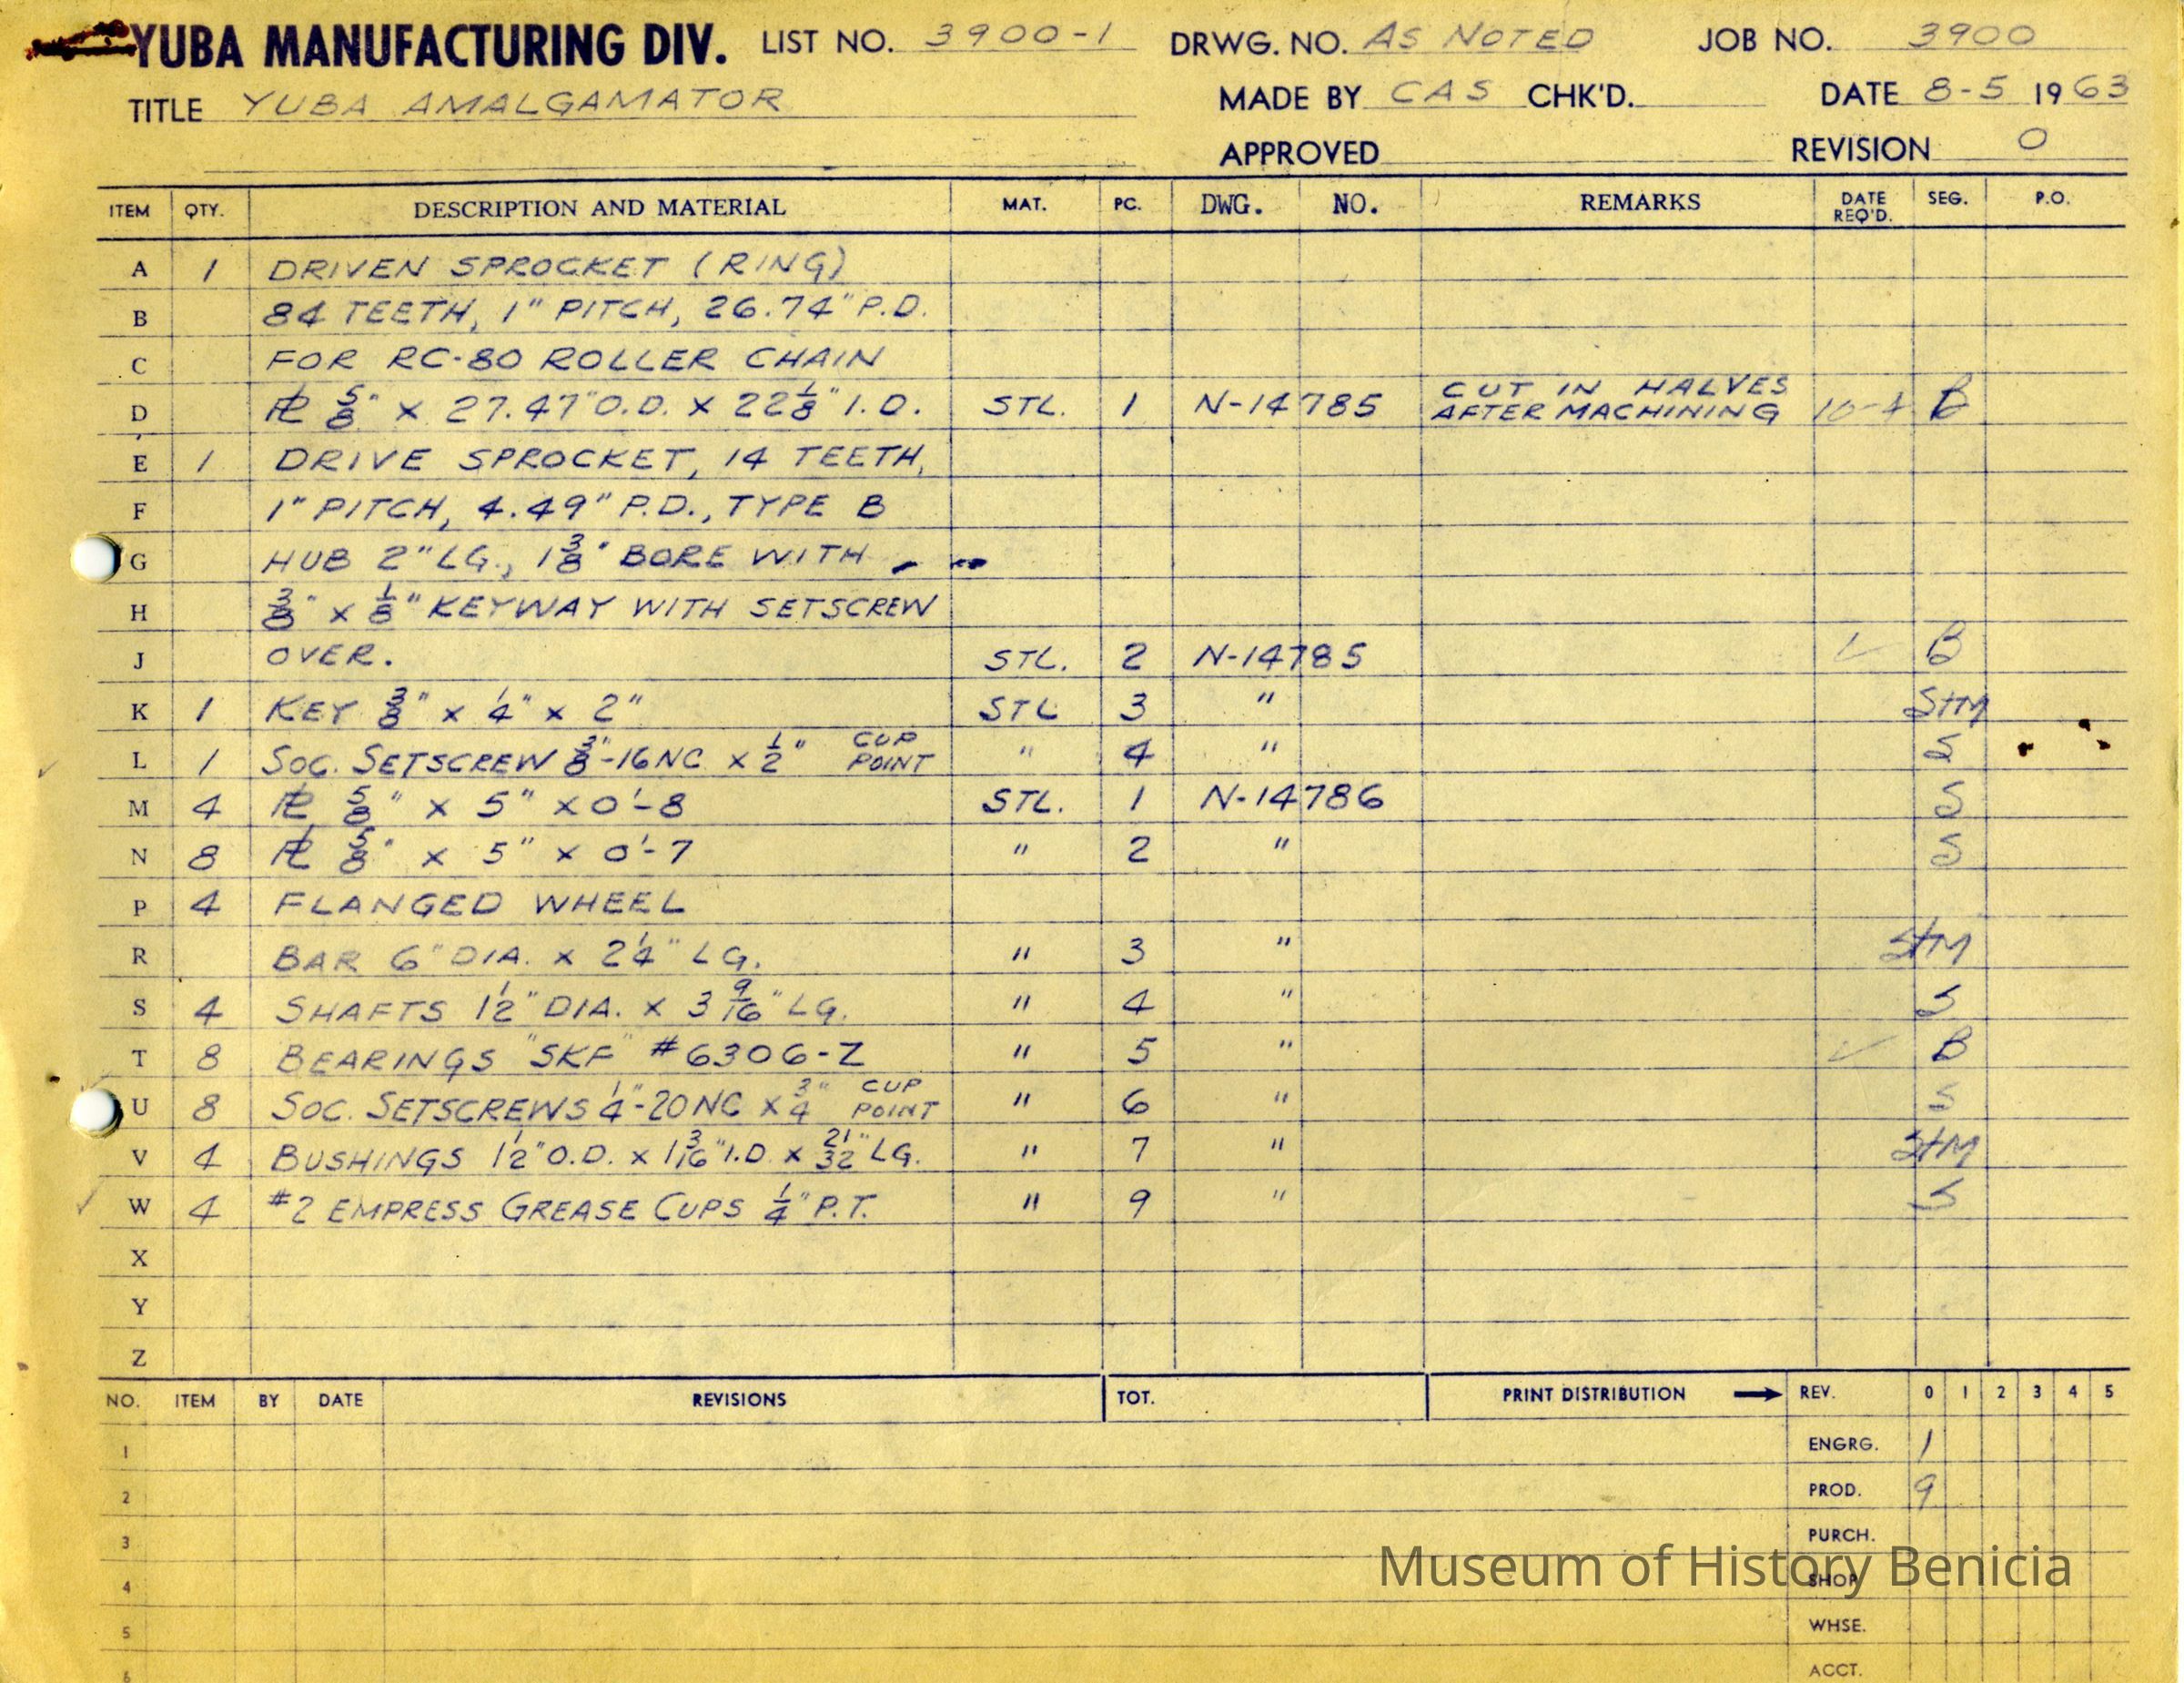 YUBA MANUFACTURING DIV. LIST NO. 3900-1 DRWG. NO. AS NOTED JOB NO. 3900
TITLE YUBA AMALGAMATOR MADE BY CAS CHK'D. DATE 8-5 1963
APPROVED REVISION 0
ITEM QTY. DESCRIPTION AND MATERIAL MAT. PC. DWG. NO. REMARKS DATE REQ'D. SEG. P.O.
A 1 DRIVEN SPROCKET (RING)
B 84 TEETH, 1" PITCH, 26.74" P.D.
C FOR RC-80 ROLLER CHAIN
D PL 5/8" x 27.47" O.D. x 22 1/8" I.D. STL. 1 N-14785 CUT IN HALVES AFTER MACHINING B
E 1 DRIVE SPROCKET, 14 TEETH,
F 1" PITCH, 4.49" P.D., TYPE B
G HUB 2" LG., 1 3/8" BORE WITH
H 3/8" x 1/8" KEYWAY WITH SETSCREW
J OVER. STL. 2 N-14785 ✓ B
K 1 KEY 3/8" x 1/4" x 2" STL 3 " S+M
L 1 SOC. SETSCREW 3/8"-16NC x 1/2" CUP POINT " 4 " S
M 4 PL 5/8" x 5" x 0'-8 STL. 1 N-14786 S
N 8 PL 5/8" x 5" x 0'-7 " 2 " S
P 4 FLANGED WHEEL
R BAR 6" DIA. x 2 1/4" LG. " 3 " S+M
S 4 SHAFTS 1 1/2" DIA. x 3 9/16" LG. " 4 " S
T 8 BEARINGS "SKF" #6306-Z " 5 " ✓ B
U 8 SOC. SETSCREWS 1/4"-20NC x 3/4" CUP POINT " 6 " S
V 4 BUSHINGS 1 1/2" O.D. x 1 3/16" I.D. x 21/32" LG. " 7 " S+M
W 4 #2 EMPRESS GREASE CUPS 1/4" P.T. " 9 " S
X
Y
Z
NO. ITEM BY DATE REVISIONS TOT. PRINT DISTRIBUTION → REV. 0 1 2 3 4 5
1 ENGRG. 1
2 PROD. 9
3 PURCH.
4 SHOP
5 WHSE.
6 ACCT.
Museum of History Benicia